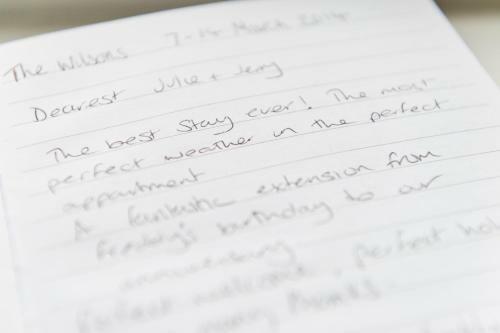 The Wilsons 7-14 March 2014
Dearest Julie + Jerry
The best stay ever! The most
perfect weather in the perfect
appartment
A fantastic extension from
Freddy's birthday to our
anniversary
perfect welcome, perfect
many thanks.